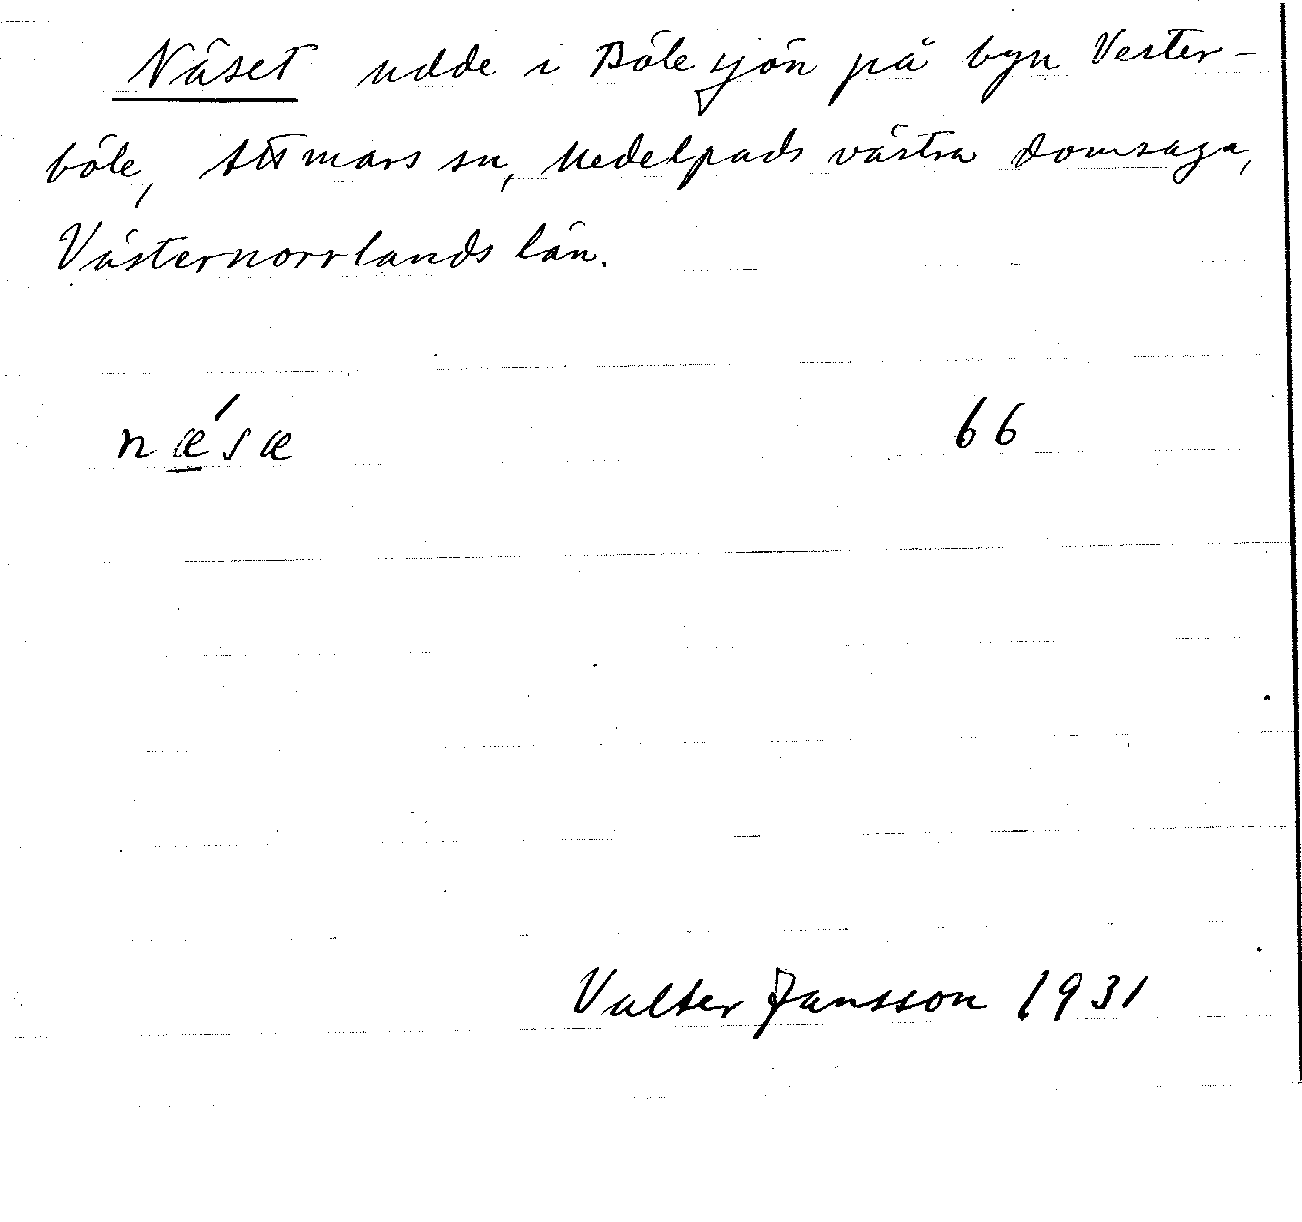 Näset udde i Böle sjön på byn Vester-
böle, Attmars sn, Medelpads västra domsaga,
Västernorrlands län.
nǽ̲sæ 66
Valter Jansson 1931